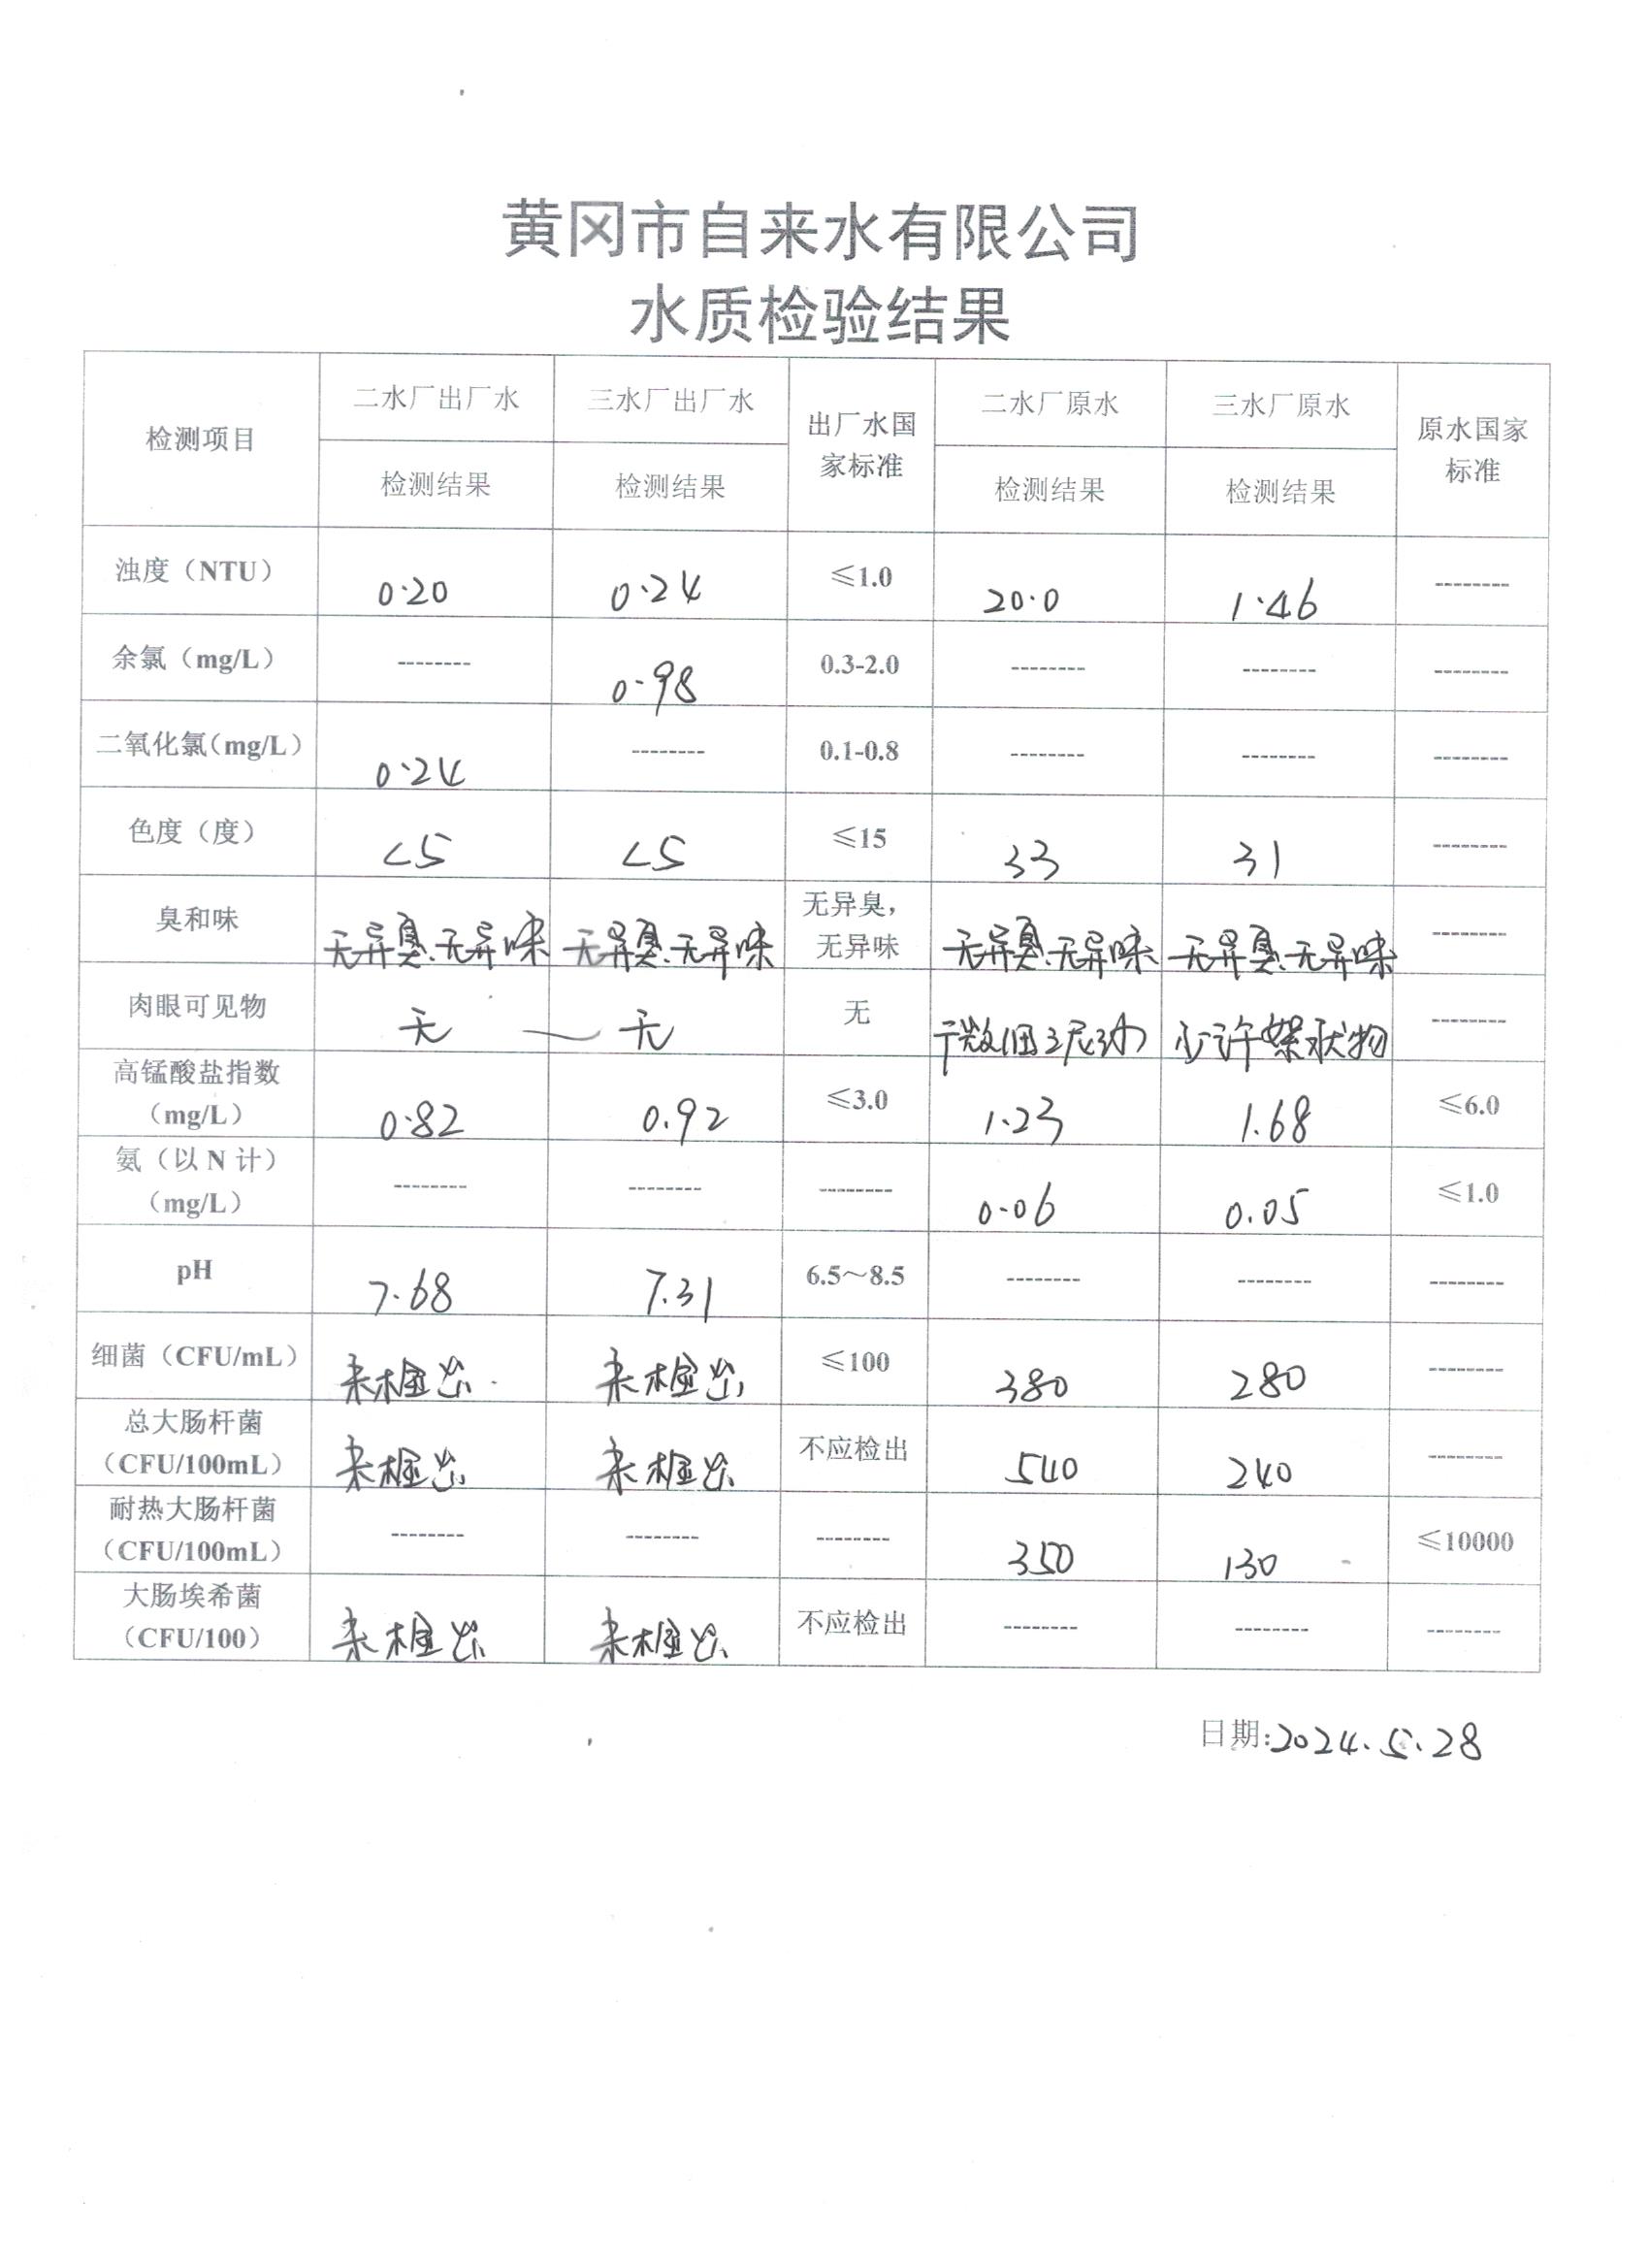 黄冈市自来水有限公司
水质检验结果
检测项目 二水厂出厂水 三水厂出厂水 出厂水国家标准 二水厂原水 三水厂原水 原水国家标准
检测结果 检测结果 检测结果 检测结果
浊度（NTU） 0.20 0.24 ≤1.0 20.0 1.46 --------
余氯（mg/L） -------- 0.98 0.3-2.0 -------- -------- --------
二氧化氯（mg/L） 0.24 -------- 0.1-0.8 -------- -------- --------
色度（度） <5 <5 ≤15 33 31 --------
臭和味 无异臭、无异味 无异臭、无异味 无异臭，无异味 无异臭、无异味 无异臭、无异味 --------
肉眼可见物 无 无 无 微细泥沙 少许絮状物 --------
高锰酸盐指数（mg/L） 0.82 0.92 ≤3.0 1.23 1.68 ≤6.0
氨（以 N 计）（mg/L） -------- -------- -------- 0.06 0.05 ≤1.0
pH 7.68 7.31 6.5～8.5 -------- -------- --------
细菌（CFU/mL） 未检出 未检出 ≤100 380 280 --------
总大肠杆菌（CFU/100mL） 未检出 未检出 不应检出 540 240 --------
耐热大肠杆菌（CFU/100mL） -------- -------- -------- 350 130 ≤10000
大肠埃希菌（CFU/100） 未检出 未检出 不应检出 -------- -------- --------
日期:2024.5.28